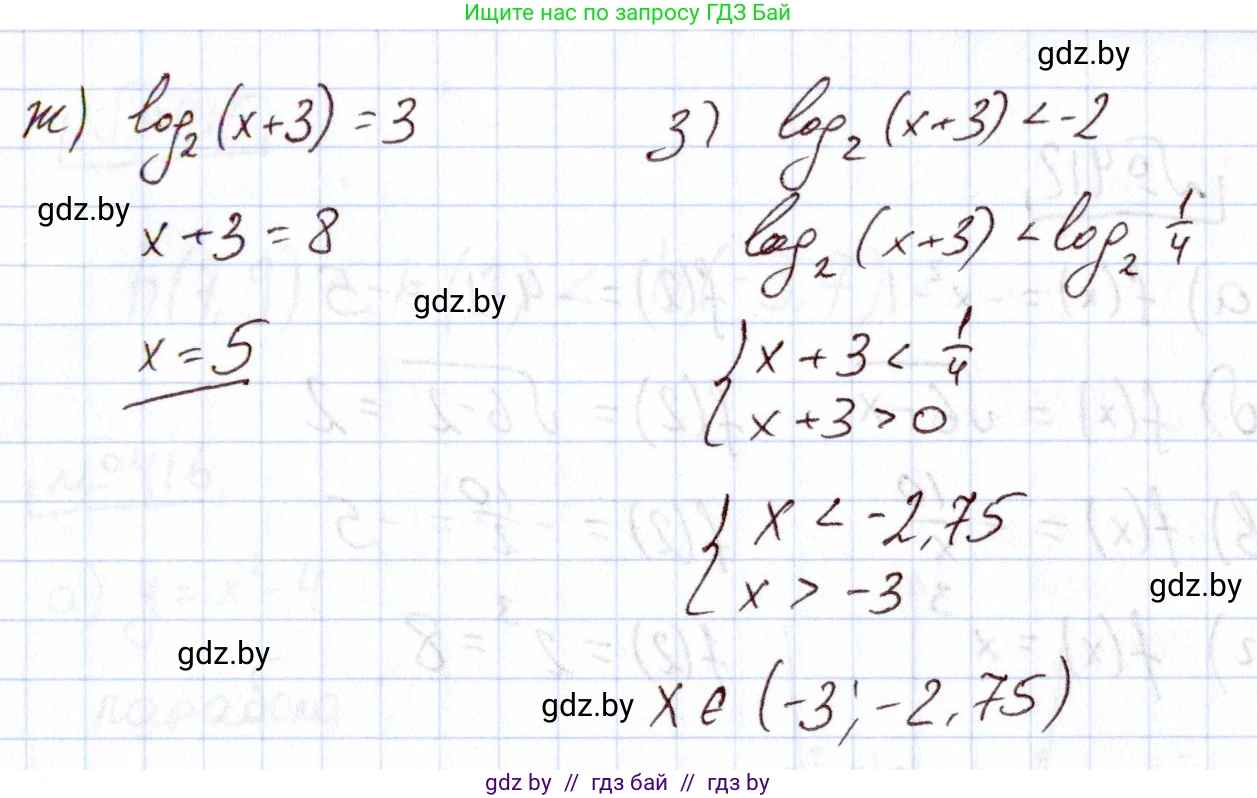 Ищите нас по запросу ГДЗ Бай
gdz.by
ж) log₂(x+3) = 3
x + 3 = 8
gdz.by
x = 5
з) log₂(x+3) < -2
log₂(x+3) < log₂ 1/4
gdz.by
{ x + 3 < 1/4
x + 3 > 0
{ x < -2,75
x > -3
gdz.by
gdz.by
gdz.by
x ∈ (-3; -2,75)
gdz.by // гдз бай // gdz.by